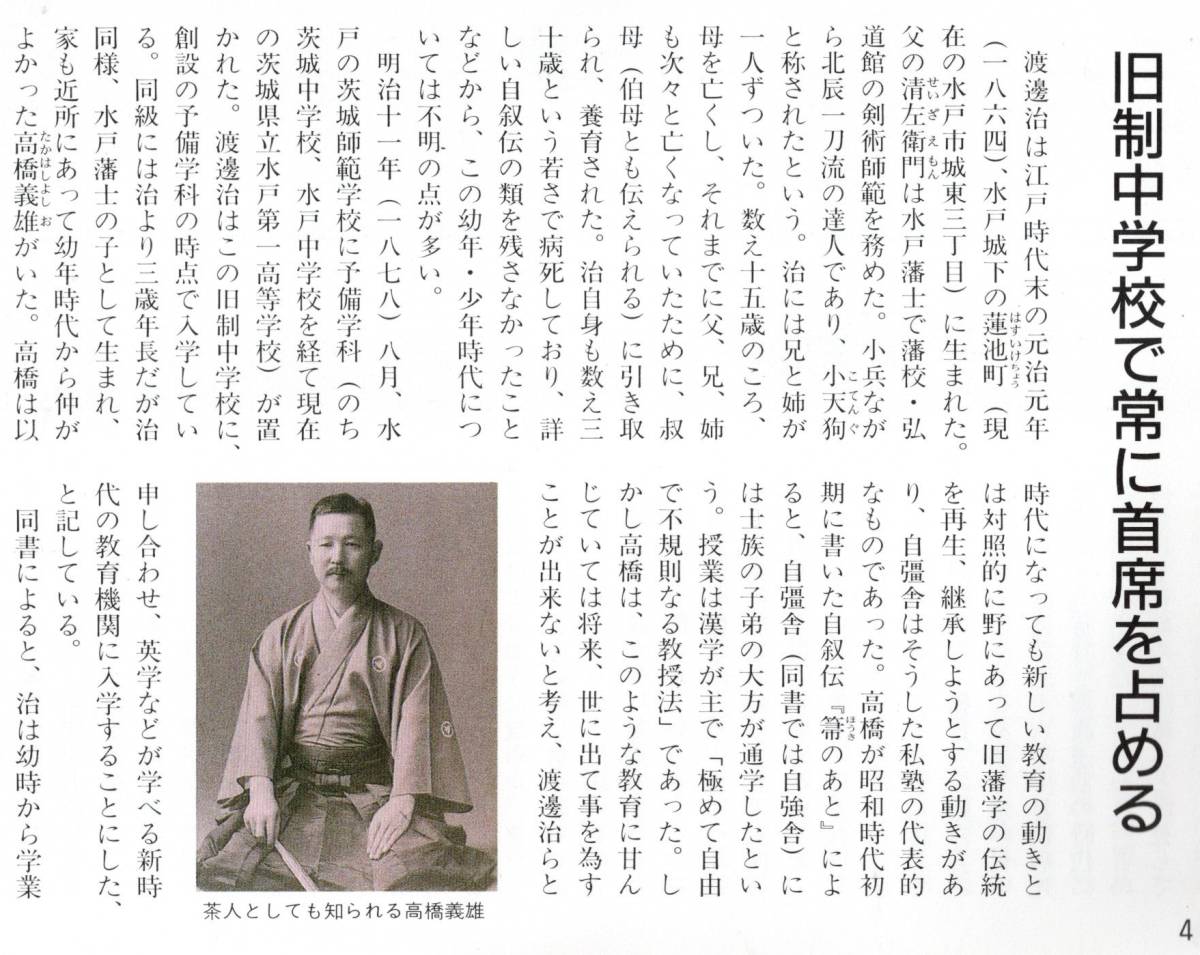 旧制中学校で常に首席を占める
渡邊治は江戸時代末の元治元年
(一八六四)、水戸城下の蓮池町(現
在の水戸市城東三丁目)に生まれた。
父の清左衛門は水戸藩士で藩校・弘
道館の剣術師範を務めた。小兵なが
ら北辰一刀流の達人であり、小天狗
と称されたという。治には兄と姉が
一人ずついた。数え十五歳のころ、
母を亡くし、それまでに父、兄、姉
も次々と亡くなっていたために、叔
母(伯母とも伝えられる)に引き取
られ、養育された。治自身も数え三
十歳という若さで病死しており、詳
しい自叙伝の類を残さなかったこと
などから、この幼年・少年時代につ
いては不明の点が多い。
明治十一年(一八七八)八月、水
戸の茨城師範学校に予備学科(のち
茨城中学校、水戸中学校を経て現在
の茨城県立水戸第一高等学校)が置
かれた。渡邊治はこの旧制中学校に、
創設の予備学科の時点で入学してい
る。同級には治より三歳年長だが治
同様、水戸藩士の子として生まれ、
家も近所にあって幼年時代から仲が
よかった高橋義雄がいた。高橋は以
時代になっても新しい教育の動きと
は対照的に野にあって旧藩学の伝統
を再生、継承しようとする動きがあ
り、自彊舎はそうした私塾の代表的
なものであった。高橋が昭和時代初
期に書いた自叙伝『箒のあと』によ
ると、自彊舎(同書では自強舎)に
は士族の子弟の大方が通学したとい
う。授業は漢学が主で「極めて自由
で不規則なる教授法」であった。し
かし高橋は、このような教育に甘ん
じていては将来、世に出て事を為す
ことが出来ないと考え、渡邊治らと
申し合わせ、英学などが学べる新時
代の教育機関に入学することにした、
と記している。
同書によると、治は幼時から学業
茶人としても知られる高橋義雄
4
せいざえもん
はすいけちょう
こてんぐ
たかはしよしお
ほうき